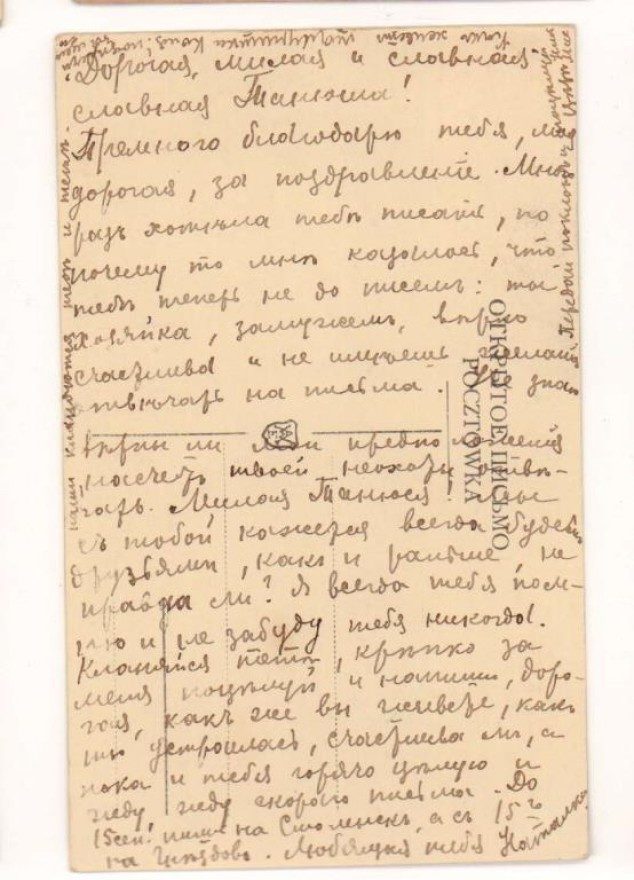 Дорогая, милая и славная
славная Танюша!
Премного благодарю тебя, моя
дорогая, за поздравленiе. Много
разъ хотѣла тебѣ писать, но
почему то мнѣ казалось, что
тебѣ теперь не до писемъ: ты
хозяйка, замужемъ, вѣрно
счастлива и не имѣешь желанiя
отвѣчать на письма. Не знаю
вѣрны ли мои предположенiя
насчетъ твоей неохоты отвѣ-
чать. Милая Танюся! мы
съ тобой кажется всегда будемъ
друзьями, какъ и раньше, не
правда ли? Я всегда тебя пом-
ню и не забуду тебя никогда.
Кланяйся Петѣ, крѣпко за
меня поцѣлуй и напиши, доро-
гая, какъ же вы живете, какъ
ты устроилась, счастлива ль, а
пока и тебя горячо цѣлую и
жду, жду скораго письма. До
15 сен. пиши на Смоленскъ, а съ 15 г
на. Любящая тебя Наталка.
наши кланяются тебѣ и
Передай поклонъ и поцѣлуй
Какъ живетъ
ОТКРЫТОЕ ПИСЬМО
POCZTÓWKA